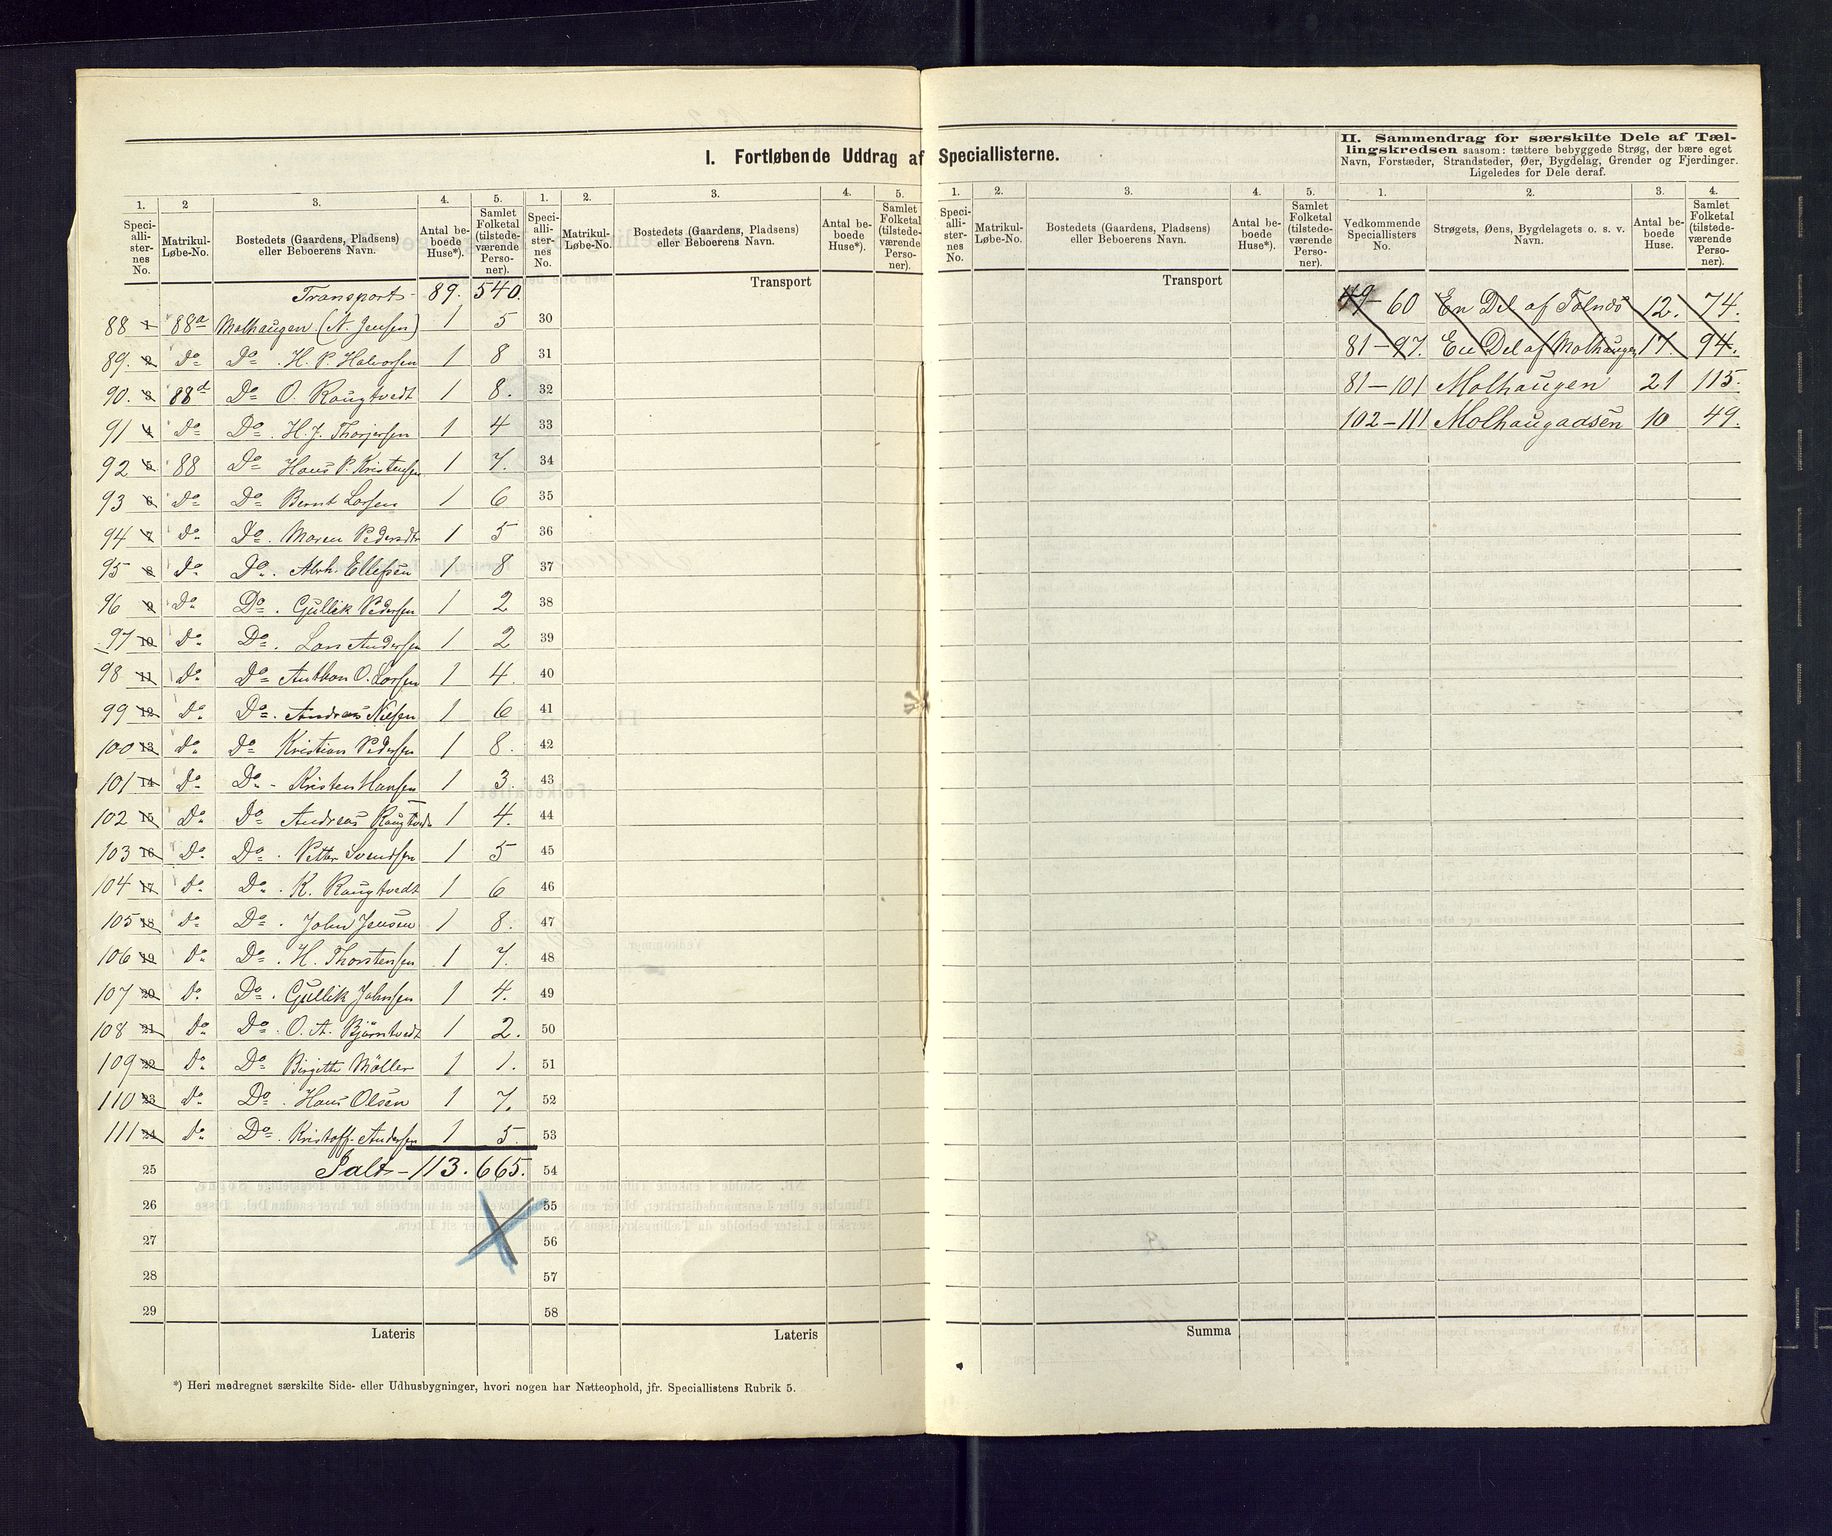 I. Fortløbende Uddrag af Speciallisterne.
II. Sammendrag for særskilte Dele af Tæl-
lingskredsen saasom: tættere bebyggede Strøg, der bære eget
Navn, Forstæder, Strandsteder, Øer, Bygdelag, Grender og Fjerdinger.
Ligeledes for Dele deraf.
1. 2 3. 4. 5. 1. 2. 3. 4. 5. 1. 2. 3. 4. 5. 1. 2. 3. 4.
Speciallisternes No. Matrikul-Løbe-No. Bostedets (Gaardens, Pladsens) eller Beboerens Navn. Antal beboede Huse*). Samlet Folketal (tilstedeværende Personer).
Speciallisternes No. Matrikul-Løbe-No. Bostedets (Gaardens, Pladsens) eller Beboerens Navn. Antal beboede Huse*). Samlet Folketal (tilstedeværende Personer).
Speciallisternes No. Matrikul-Løbe-No. Bostedets (Gaardens, Pladsens) eller Beboerens Navn. Antal beboede Huse*). Samlet Folketal (tilstedeværende Personer).
Vedkommende Speciallisters No. Strøgets, Øens, Bygdelagets o. s. v. Navn. Antal beboede Huse. Samlet Folketal (tilstedeværende Personer).
Transport - 89. 540. Transport Transport
88 1 88a Molhaugen (N. Jensen) 1 5 30
89. 2 Do Do . H. P. Halvorsen 1 8 31
90. 3 88d Do O. Raugtvedt 1 8. 32
91 4 Do Do . H. J. Thorjersen 1 4 33
92 5 88 Do Hans P. Kristensen 1 7. 34
93 6 Do Do Bernt Larsen 1 6 35
94 7 Do Do . Maren Pedersdtr 1 5 36
95 8 Do Do . Abrh. Ellefsen 1 8 37
96 9 Do Do . Gullik Pedersen 1 2 38
97 10 Do Do . Lars Andersen 1 2 39
98 11 Do Do Anthon O. Larsen 1 4. 40
99 12 Do Do . Andreas Nilsen 1 6 41
100 13 Do Do Kristian Pedersen 1 8. 42
101 14 Do Do - Kristen Hansen 1 3 43
102 15 Do Do . Andreas Raugtvedt 1 4. 44
103 16 Do Do . Petter Svendsen 1 5 45
104 17 Do Do . K. Raugtvedt 1 6 46
105 18 Do Do . John Jensen 1 8. 47
106 19 Do Do . H. Thorstensen 1 7. 48
107 20 Do Do . Gullik Johnsen 1 4. 49
108 21 Do Do . O. A. Bjørntvedt 1 2. 50
109 22 Do Do Birgitte Møller 1 1. 51
110 23 Do Do . Hans Olsen 1 7. 52
111 24 Do Do . Kristoff. Andersen 1 5. 53
25 Ialt - 113. 665. 54
26 55
27 56
28 57
29 58
Lateris Lateris Summa
*) Heri medregnet særskilte Side- eller Udhusbygninger, hvori nogen har Natteophold, jfr. Speciallistens Rubrik 5.
49 - 60 En Del af Folnæs 12. 74.
81 - 97. En Del af Molhaugen 17. 94.
81 - 101 Molhaugen 21 115.
102 - 111 Molhaugaasen 10 49.